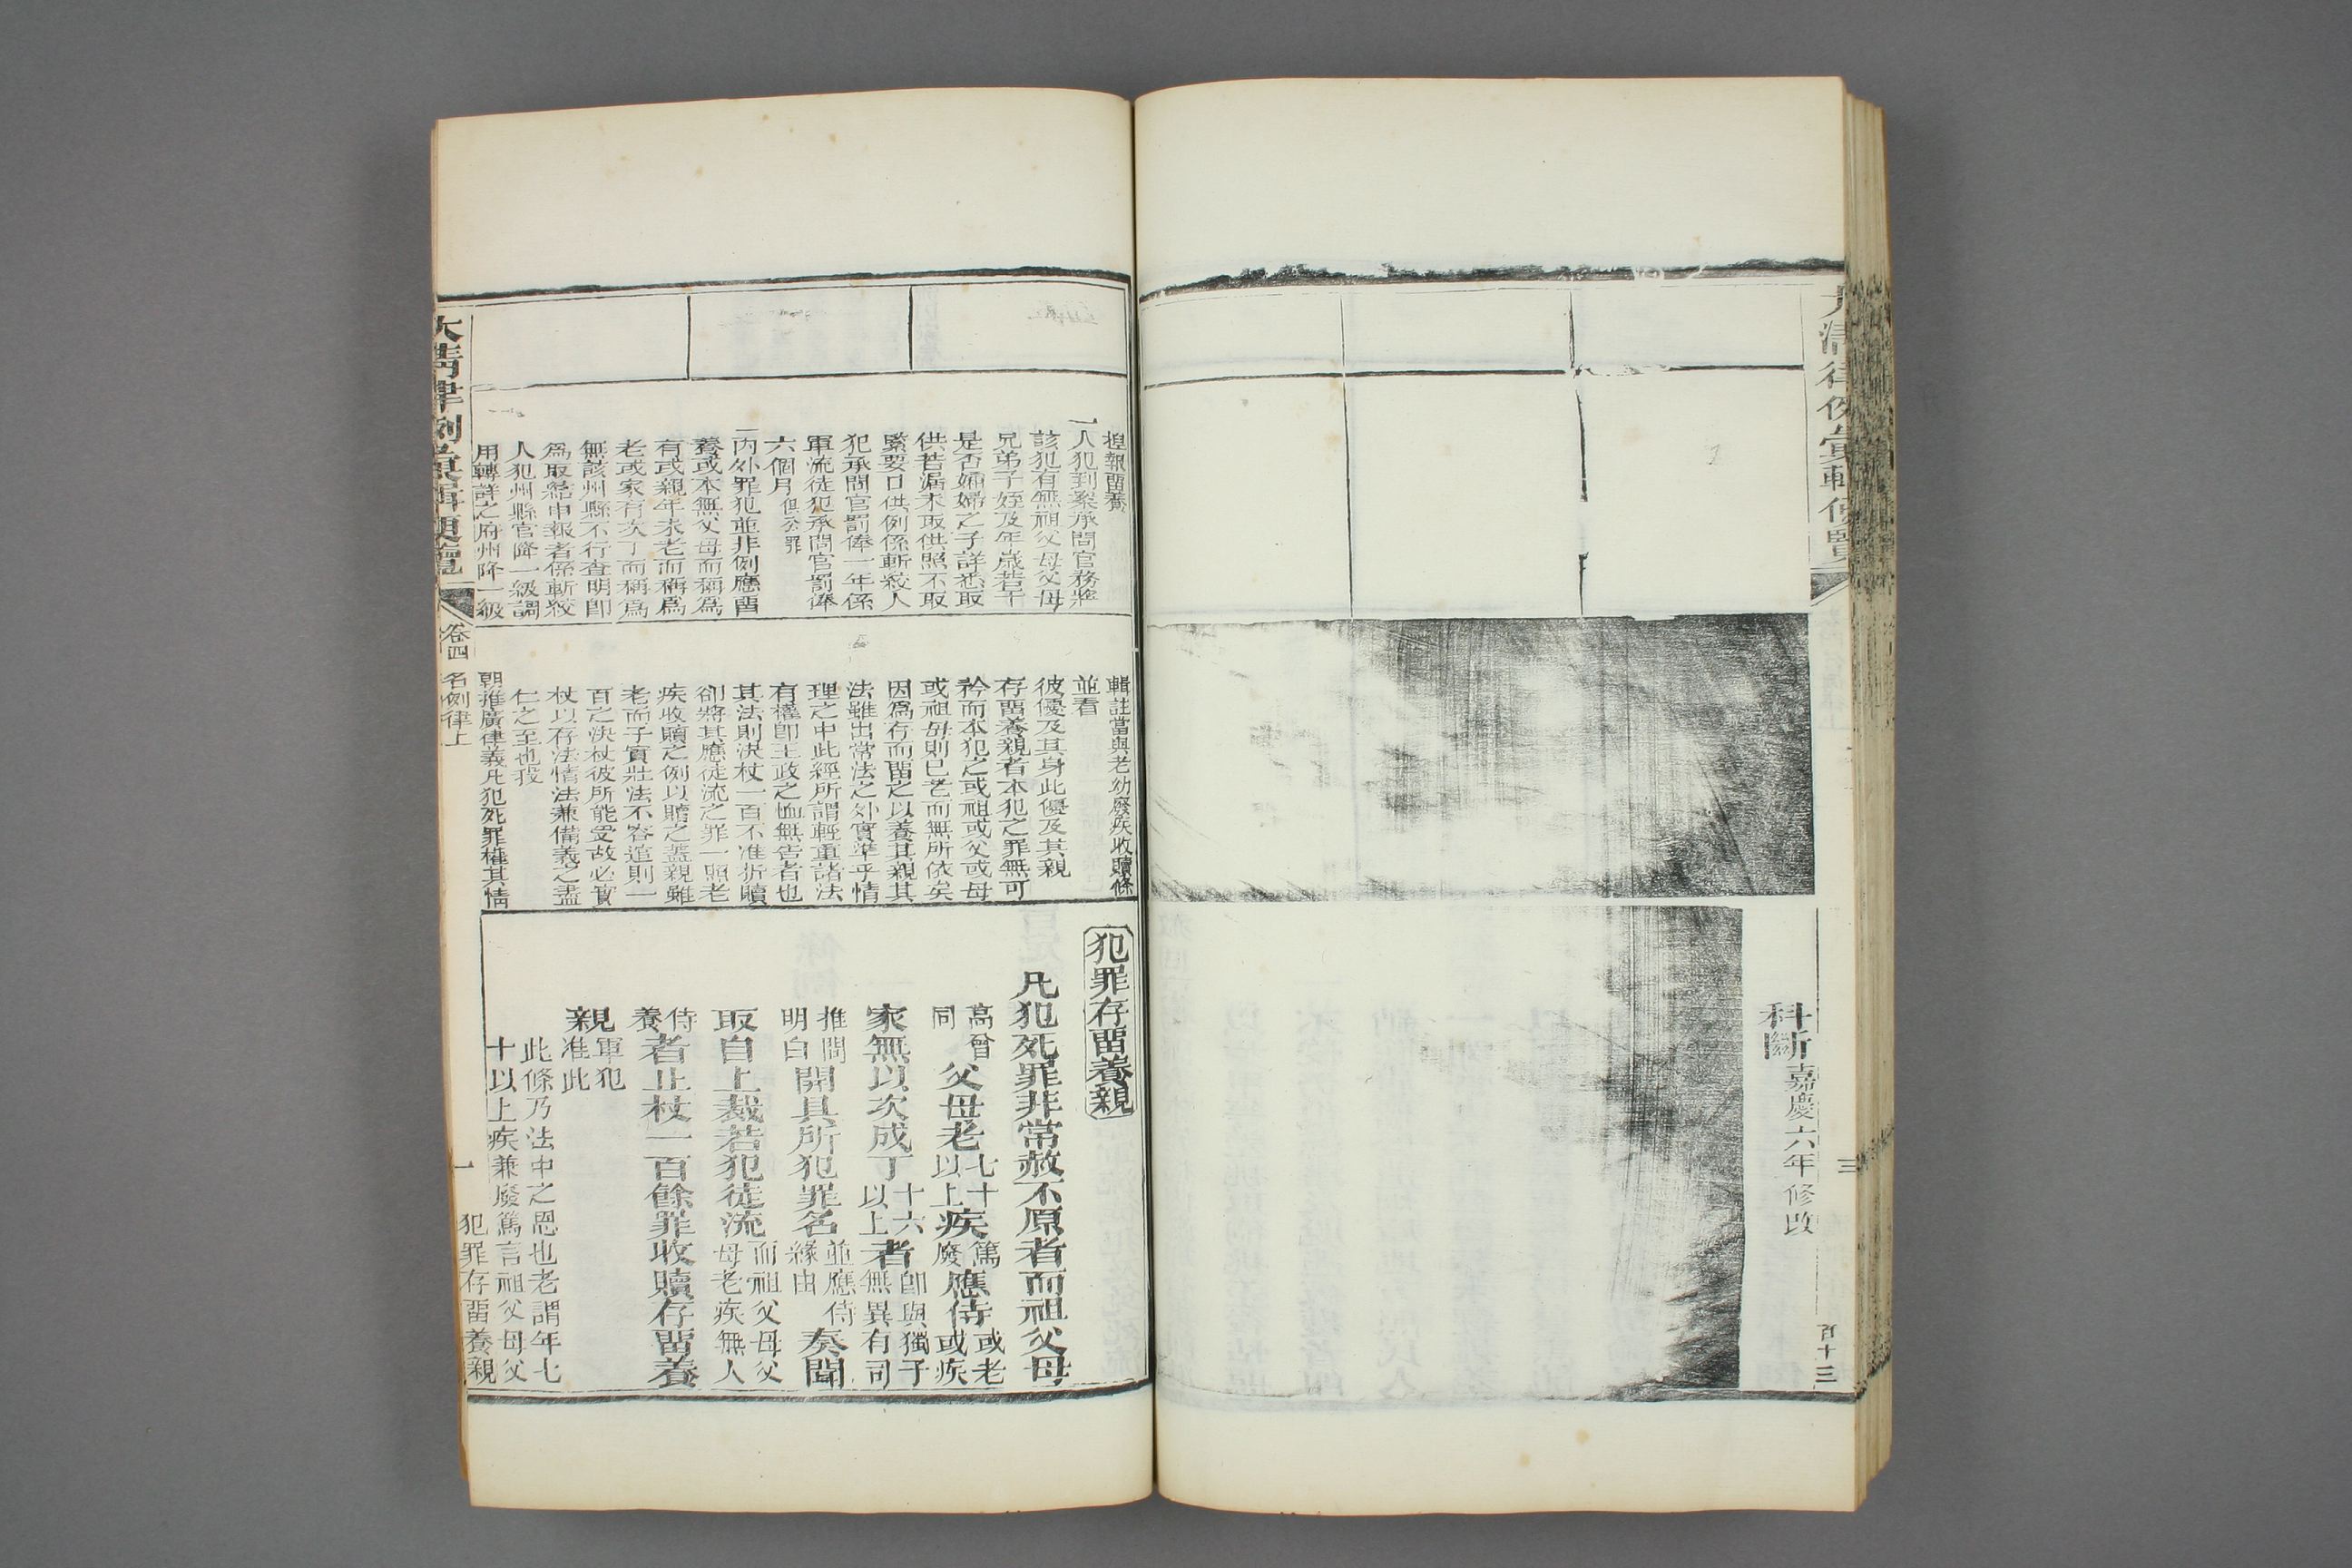 大清律例彙輯便覽
三
科斷嘉慶六年修改
捏報留養
一人犯到案承問官務將
該犯有無祖父母父母
兄弟子姪及年歲若干
是否孀婦之子詳悉取
供若漏未取供照不取
緊要口供例係斬絞人
犯承問官罰俸一年係
軍流徒犯承問官罰俸
六個月俱公罪
一內外罪犯並非例應留
養或本無父母而稱爲
有或親年未老而稱爲
老或家有次丁而稱爲
無該州縣不行查明卽
爲取結申報者係斬絞
人犯州縣官降一級調
用轉詳之府州降一級
輯註當與老幼廢疾收贖條
並看
彼優及其身此優及其親
存留養親者本犯之罪無可
矜而本犯之或祖或父或母
或祖母則已老而無所依矣
因爲存而留之以養其親其
法雖出常法之外實準乎情
理之中此經所謂輕重諸法
有權卽王政之恤無告者也
其法則決杖一百不准折贖
卻將其應徒流之罪一照老
疾收贖之例以贖之蓋親雖
老而子實壯法不容逭則一
百之決杖彼所能受故必實
杖以存法情法兼備義之盡
仁之至也我
朝推廣律義凡犯死罪權其情
犯罪存留養親
凡犯死罪非常赦不原者而祖父母
高曾同父母老七十以上疾篤廢應侍或老或疾
家無以次成丁十六以上者卽與獨子無異有司
推問明白開具所犯罪名並應侍緣由奏聞
取自上裁若犯徒流而祖父母父母老疾無人
侍養者止杖一百餘罪收贖存留養
親軍犯准此
此條乃法中之恩也老謂年七
十以上疾兼廢篤言祖父母父
大清律例彙輯便覽
卷四 名例律上
一
犯罪存留養親